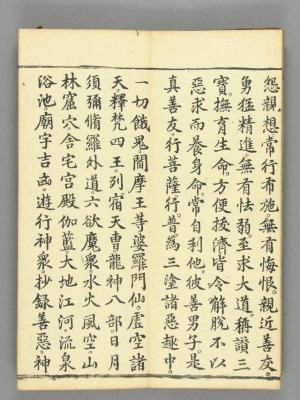 怨親想常行布施無有悔恨。親近善友。
勇猛精進無有怯弱至求大道稱讚三
寶。撫育生命。方便拔濟皆令解脫不以
惡求而養身命。常自利他。彼善男子。是
真善友。行菩薩行。普為三塗諸惡趣中。
一切餓鬼閻摩王等婆羅門仙。虛空諸
天。釋梵四王。列宿天曹龍神八部。日月
須彌脩羅外道。六欲魔眾水火風空。山
林窟穴。舍宅宮殿伽藍大地江河流泉
浴池。廟宇吉凶。遊行神眾抄錄善惡神